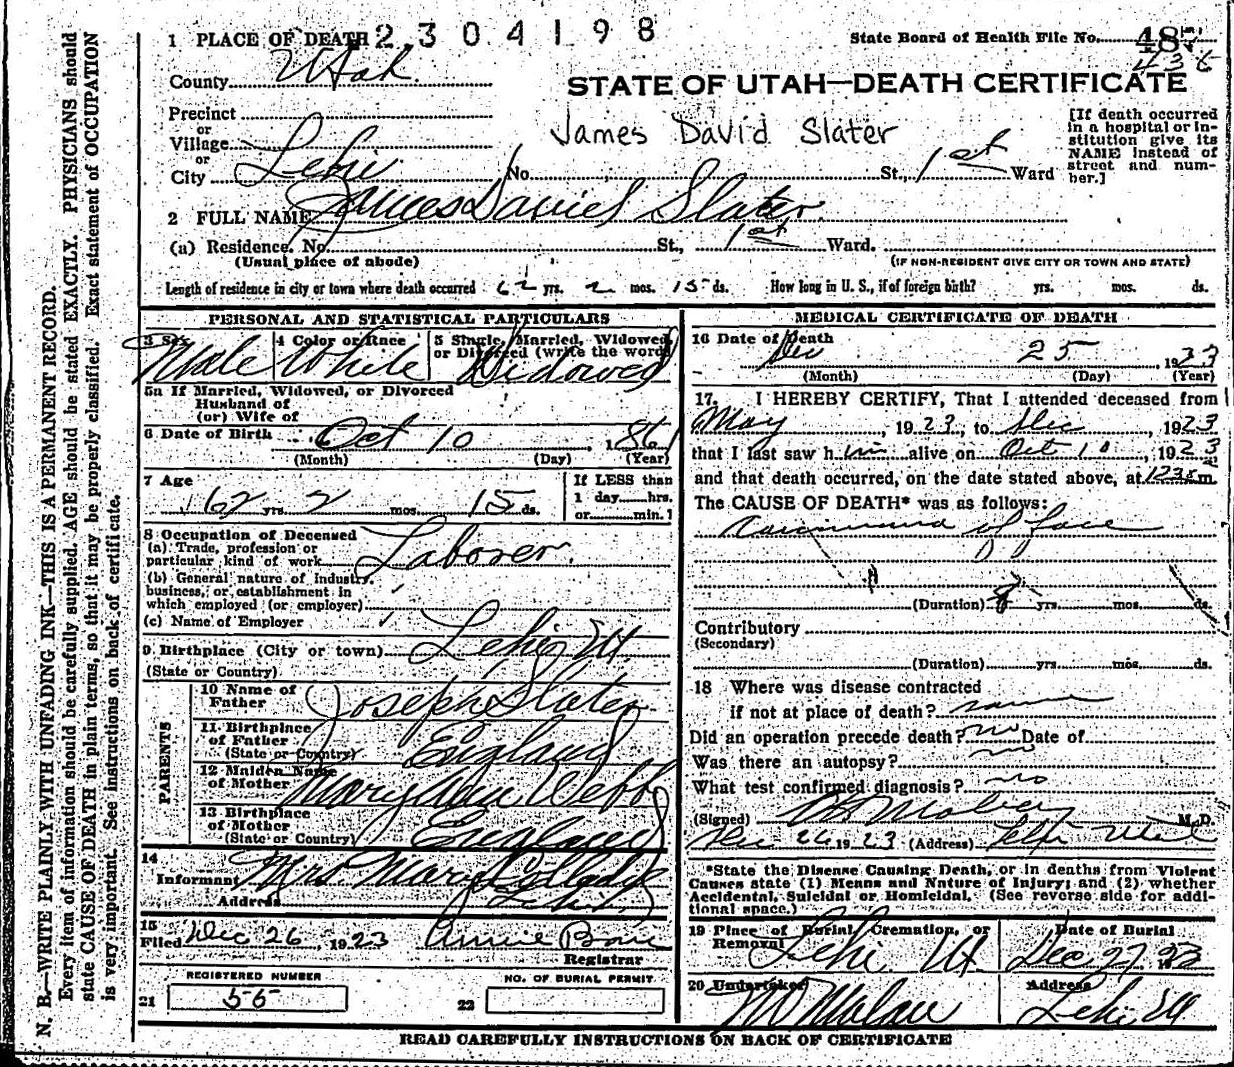 2304198
State Board of Health File No. 487
436
1 PLACE OF DEATH
County Utah
STATE OF UTAH—DEATH CERTIFICATE
Precinct
or
Village
or
City Lehi No. St., 1st Ward
James David Slater
[If death occurred
in a hospital or in-
stitution give its
NAME instead of
street and num-
ber.]
2 FULL NAME James Daniel Slater
(a) Residence. No. St., 1st Ward.
(Usual place of abode) (IF NON-RESIDENT GIVE CITY OR TOWN AND STATE)
Length of residence in city or town where death occurred 62 yrs. 2 mos. 15 ds. How long in U. S., if of foreign birth? yrs. mos. ds.
PERSONAL AND STATISTICAL PARTICULARS
3 Sex Male
4 Color or Race White
5 Single, Married, Widowed,
or Divorced (write the word)
Widowed
5a If Married, Widowed, or Divorced
Husband of
(or) Wife of
6 Date of Birth Oct 10 1861
(Month) (Day) (Year)
7 Age
62 yrs. 2 mos. 15 ds.
If LESS than
1 day hrs.
or min.
8 Occupation of Deceased
(a) Trade, profession or
particular kind of work Laborer.
(b) General nature of industry,
business, or establishment in
which employed (or employer)
(c) Name of Employer
9 Birthplace (City or town) Lehi Ut.
(State or Country)
PARENTS
10 Name of
Father Joseph Slater
11 Birthplace
of Father
(State or Country) England
12 Maiden Name
of Mother Mary Ann Webb
13 Birthplace
of Mother
(State or Country) England
14
Informant Mrs. Mary
Address Lehi
15
Filed Dec 26, 1923 Annie
Registrar
REGISTERED NUMBER
21 56
NO. OF BURIAL PERMIT
22
MEDICAL CERTIFICATE OF DEATH
16 Date of Death
Dec 25 1923
(Month) (Day) (Year)
17. I HEREBY CERTIFY, That I attended deceased from
May, 1923, to Dec, 1923
that I last saw him alive on Oct 10, 1923
and that death occurred, on the date stated above, at m.
The CAUSE OF DEATH* was as follows:
Carcinoma of face
(Duration) yrs. mos. ds.
Contributory
(Secondary)
(Duration) yrs. mos. ds.
18 Where was disease contracted
if not at place of death? same
Did an operation precede death? no Date of
Was there an autopsy? no
What test confirmed diagnosis? no
(Signed) M.D.
Dec 26 1923 (Address) Lehi Utah
*State the Disease Causing Death, or in deaths from Violent
Causes state (1) Means and Nature of Injury; and (2) whether
Accidental, Suicidal or Homicidal. (See reverse side for addi-
tional space.)
19 Place of Burial, Cremation, or
Removal
Lehi Ut
Date of Burial
Dec 27 1923
20 Undertaker
Address
Lehi Ut
READ CAREFULLY INSTRUCTIONS ON BACK OF CERTIFICATE
N. B.—WRITE PLAINLY WITH UNFADING INK—THIS IS A PERMANENT RECORD.
Every item of information should be carefully supplied. AGE should be stated EXACTLY. PHYSICIANS should
state CAUSE OF DEATH in plain terms, so that it may be properly classified. Exact statement of OCCUPATION
is very important. See instructions on back of certificate.